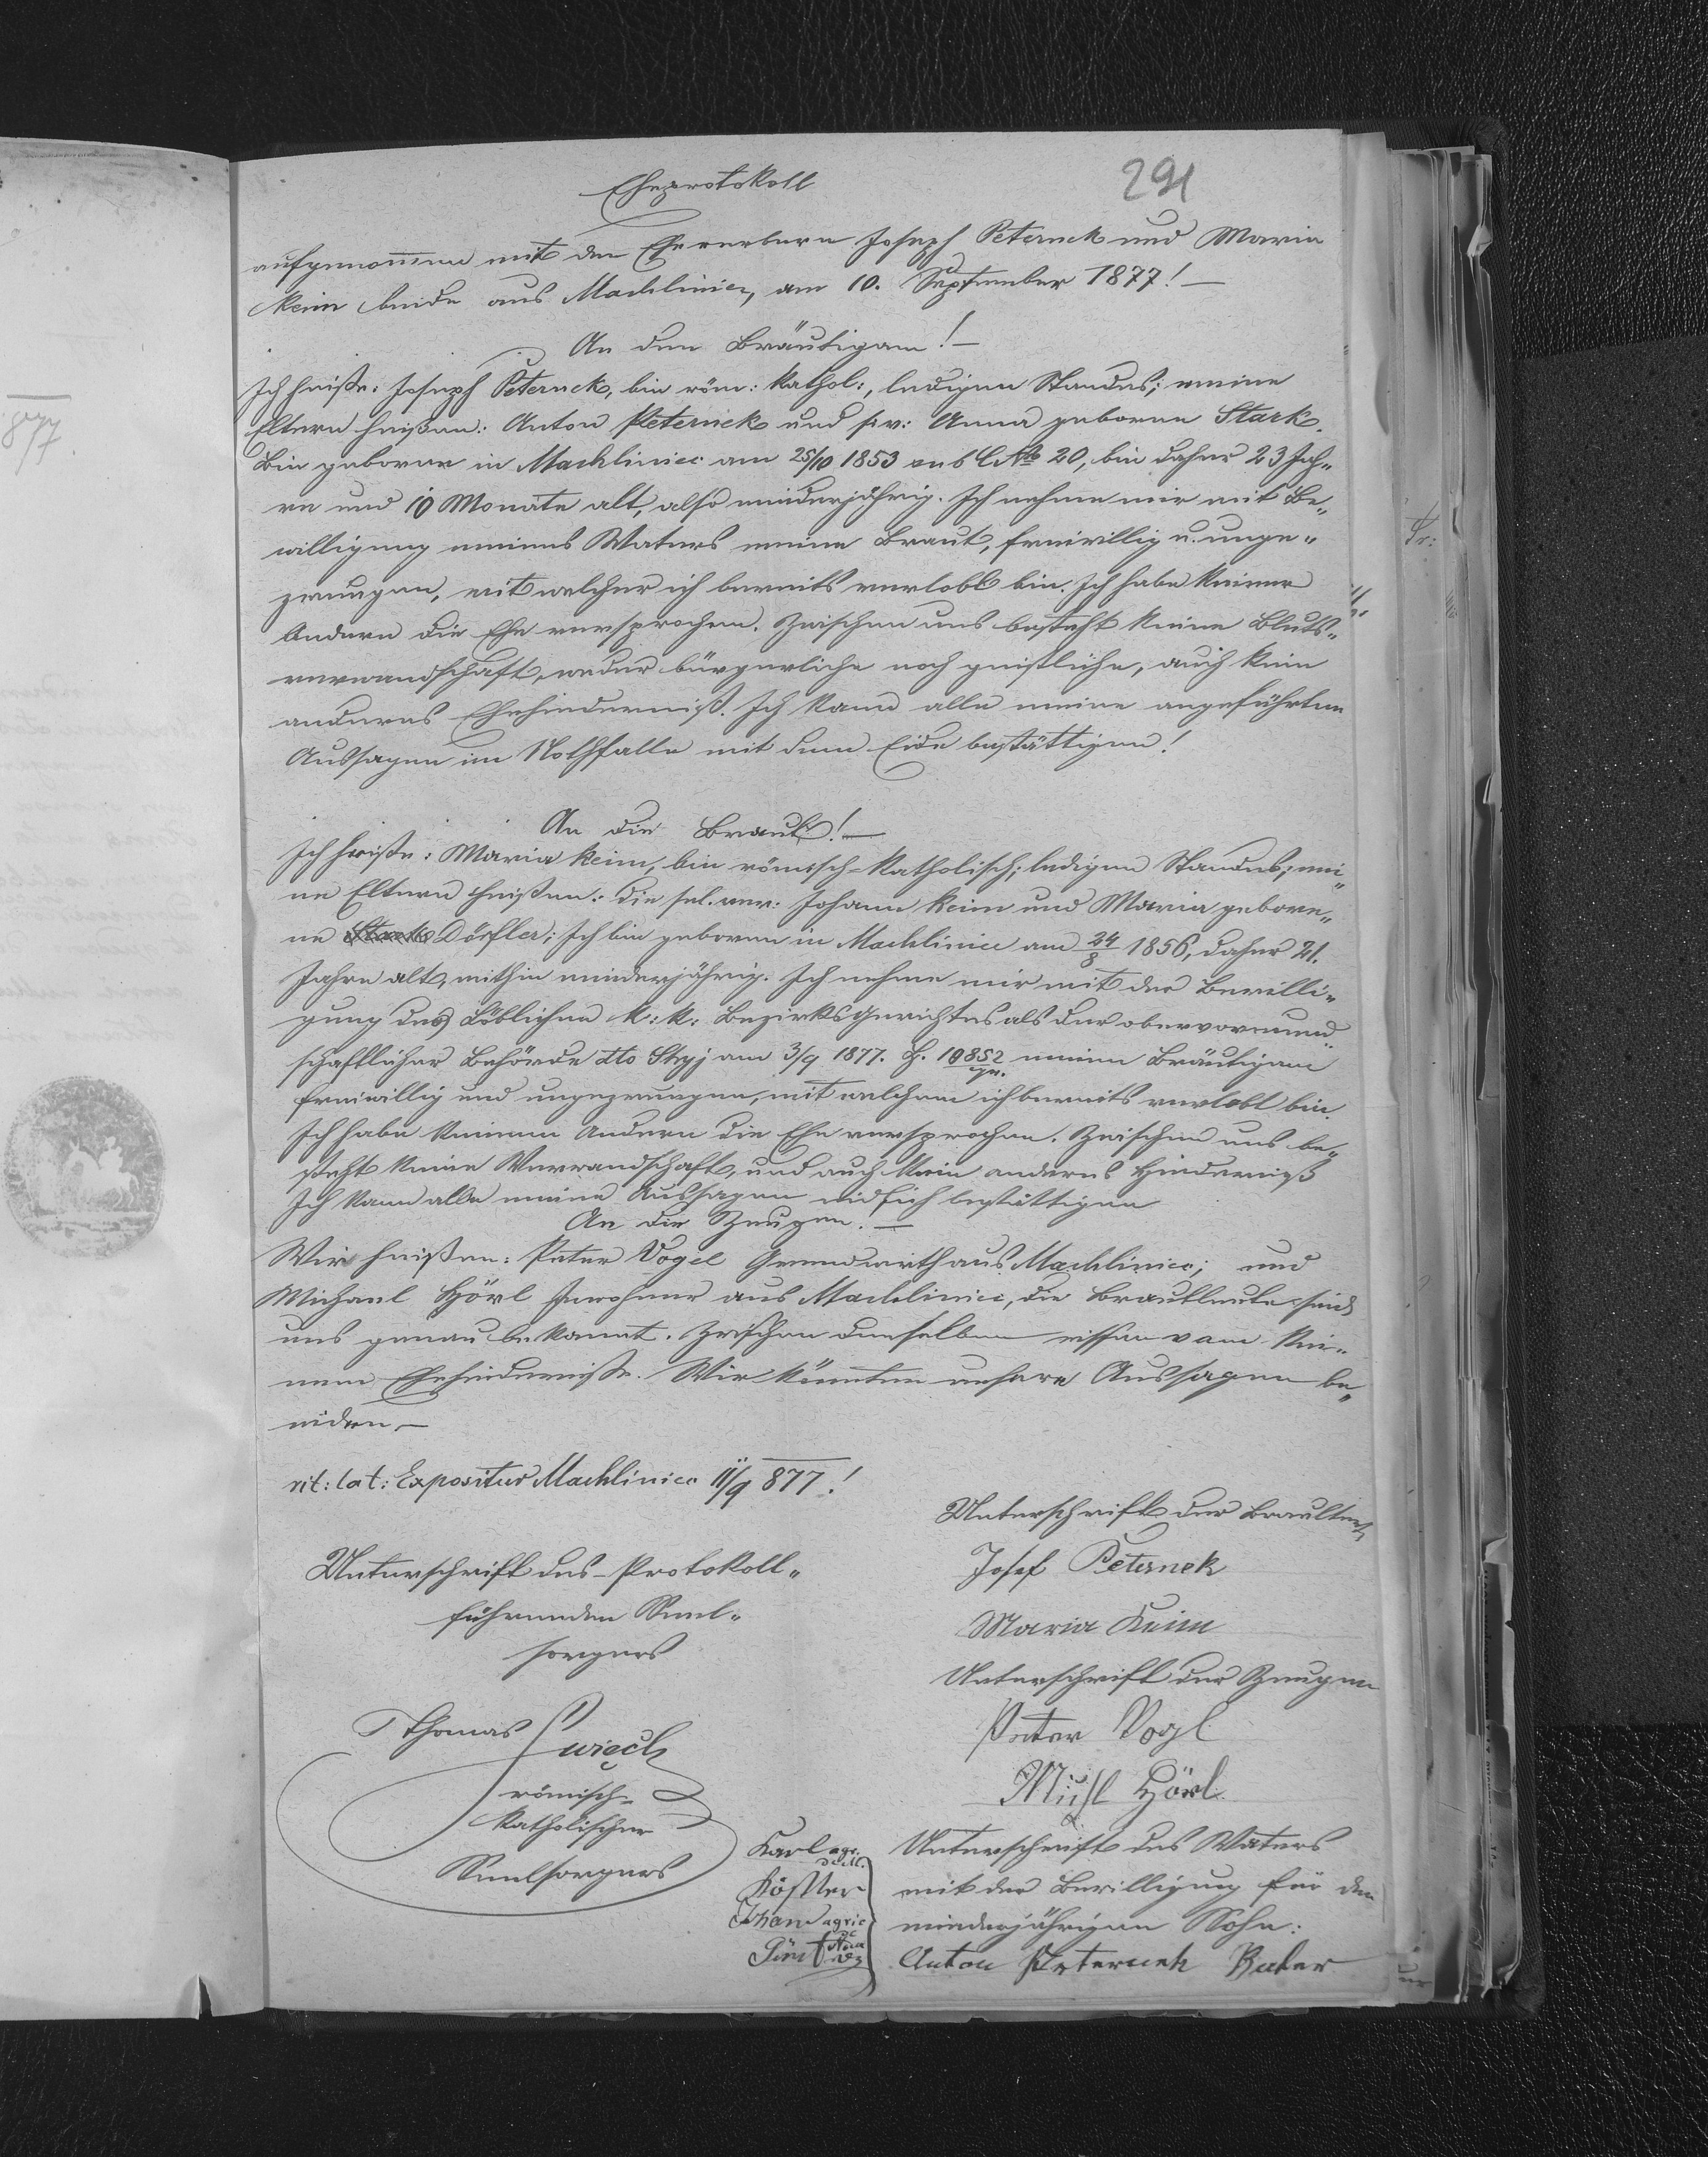 291
Eheprotokoll
aufgenommen mit den Ehewerbern Joseph Peternek und Maria
Keim beide aus Machliniec, am 10. September 1877! —
An den Bräutigam! —
Ich heiße: Joseph Peternek, bin röm: kathol:, ledigen Standes; meine
Eltern heißen: Anton Peternek und Anna geborne Stark.
Bin geboren in Machliniec am 25/10 1853 sub CNo 20, bin daher 23 Jah„
re und 10 Monate alt, also minderjährig. Ich nehme mir mit Be„
willigung meines Vaters meine Braut, freiwillig u. unge„
zwungen, mit welcher ich bereits verlobt bin. Ich habe keiner
Andern die Ehe versprochen. Zwischen uns besteht keine Bluts„
verwandschaft, weder bürgerliche noch geistliche, auch kein
anderes Ehehinderniß. Ich kann alle meine angeführten
Aussagen im Nothfalle mit dem Eide bestättigen!
An die Braut! —
Ich heiße: Maria Keim, bin römisch-katholisch; ledigen Standes; mei„
ne Eltern heißen: die sel. ver: Johann Keim und Maria gebore„
ne Dörfler; Ich bin geboren in Machliniec am 24/8 1856, daher 21.
Jahre alt, mithin minderjährig. Ich nehme mir mit der Bewilli„
gung des Löblichen k: k: Bezirksgerichtes als der obervormund„
schaftlicher Behörde dto Stryj am 3/9 1877. Z. 10852 meinen Bräutigam
freiwillig und ungezwungen, mit welchem ich bereits verlobt bin.
Ich habe keinem Andern die Ehe versprochen. Zwischen uns be„
steht keine Verwandschaft, und auch kein anderes Hinderniß
Ich kann alle meine Aussagen eidlich bestättigen
An die Zeugen. —
Wir heißen: Peter Vogel Grundwirth aus Machliniec; und
Michael Hörl Inwohner aus Machliniec, die Brautleute sind
uns genau bekannt. Zwischen denselben wissen von kei„
nem Ehehinderniße. Wir könnten unsere Aussagen be„
eiden —
rit: lat: Expositur Machliniec 11/9 877!
Unterschrift der Brautleute
Josef Peternek
Maria Keim
Unterschrift der Zeugen
Peter Vogl
Michl Hörl
Unterschrift des Protokoll„
führenden Seel„
sorgers
Thomas Swięch
römisch-
katholischer
Seelsorgers
Karl agr.
Köstler
Johann agric
Unterschrift des Vaters
mit der Bewilligung für den
minderjährigen Sohn:
Anton Peternek Vater
877.